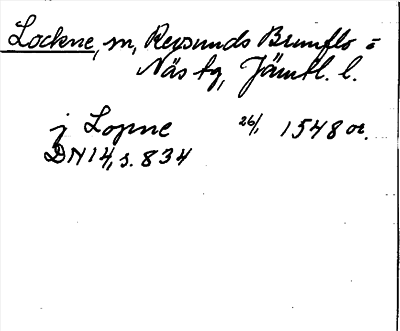 Lockne, sn, Revsunds Brunflo =
Näs tg, Jämtl. l.
j Lopne 26/1 1548 or.
DN 14, s. 834